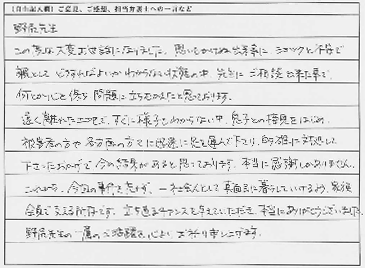 【自由記入欄】ご意見、ご感想、担当弁護士への一言など
野尻先生
この度は大変お世話になりました。思いもかけぬ出来事に ショックと不安で
親として どうすればよいかわからない状態の中、先生に ご相談出来た事で、
何とか心を保ち 問題に立ちむかえたと思っております。
遠く離れたこともので、すぐに様子もわからない中、息子との接見をはじめ、
被害者の方や各方面の方々に迅速に足を運んで下さり、的確に対処して
下さったおかげで 今の結果があると思っております。本当に感謝しかありません。
これから、今回の事件を忘れず、一社会人として 真面目に暮らしていけるよう、家族
全員で支える所存です。立ち直るチャンスを与えていただき、本当にありがとうございました。
野尻先生の一層のご活躍を心より お祈り申し上げます。